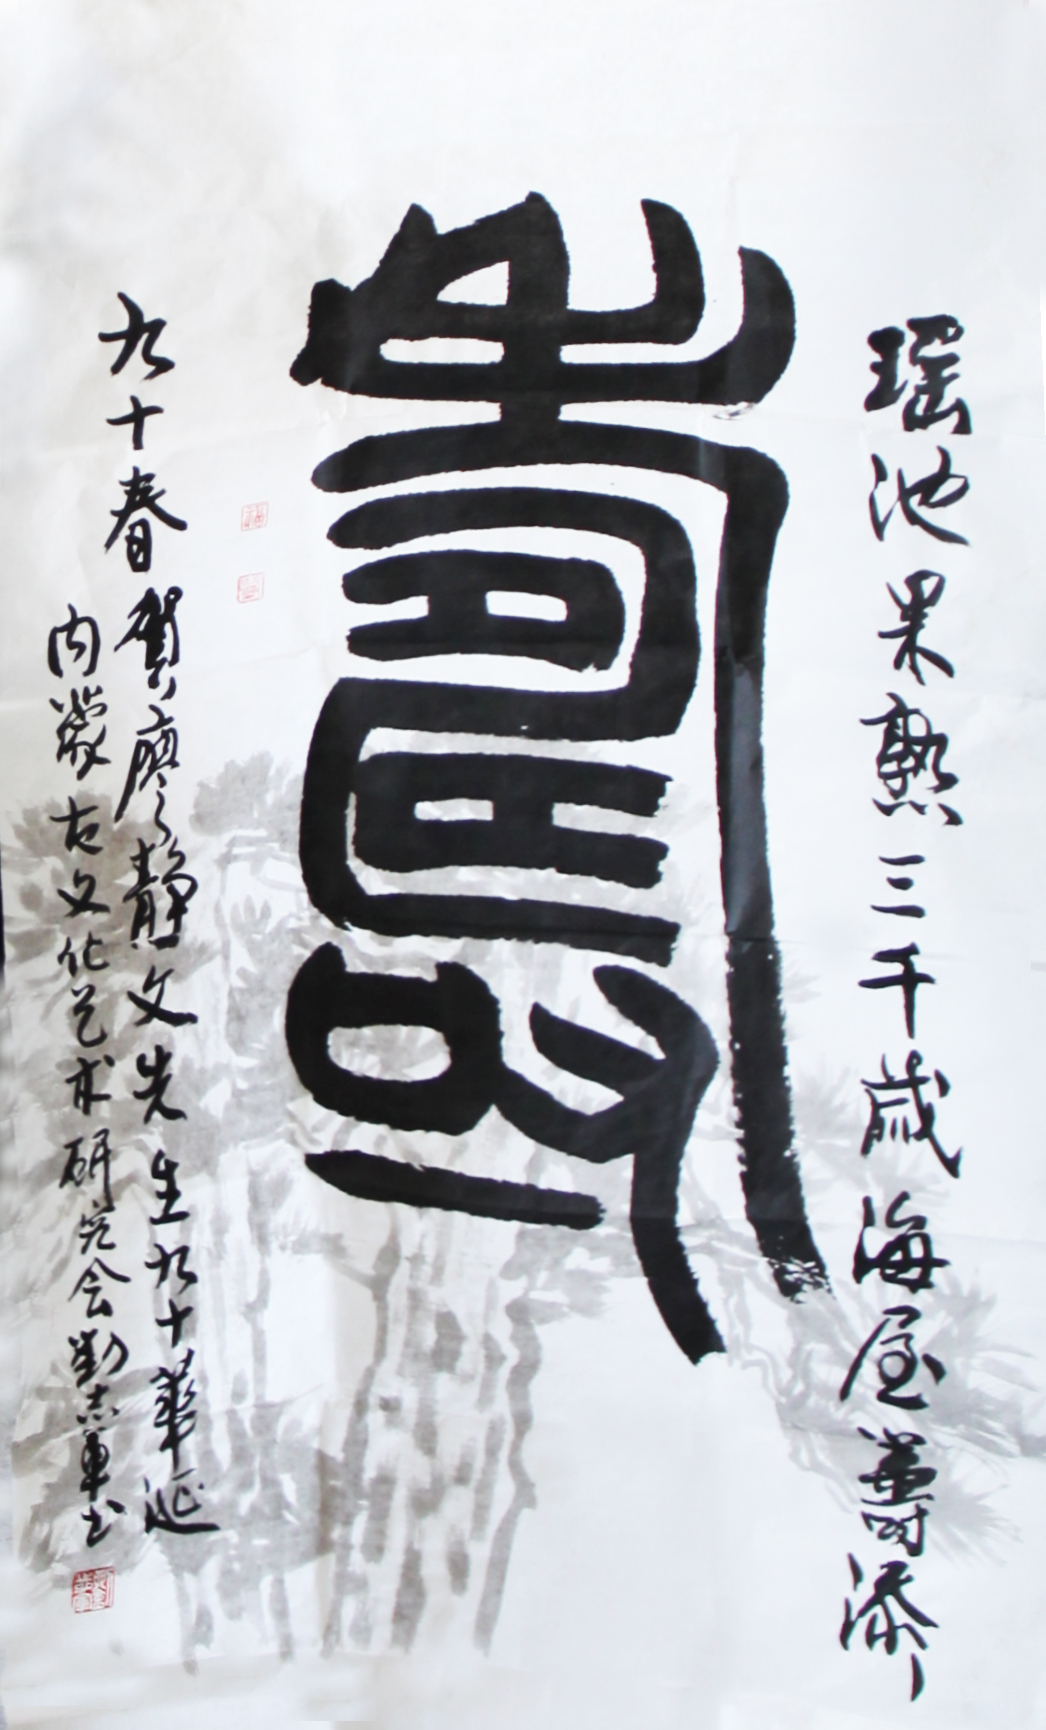 瑶池果熟三千歲海屋籌添
壽
九十春賀廖静文先生九十華诞
内蒙古文化艺术研究会劉志軍书